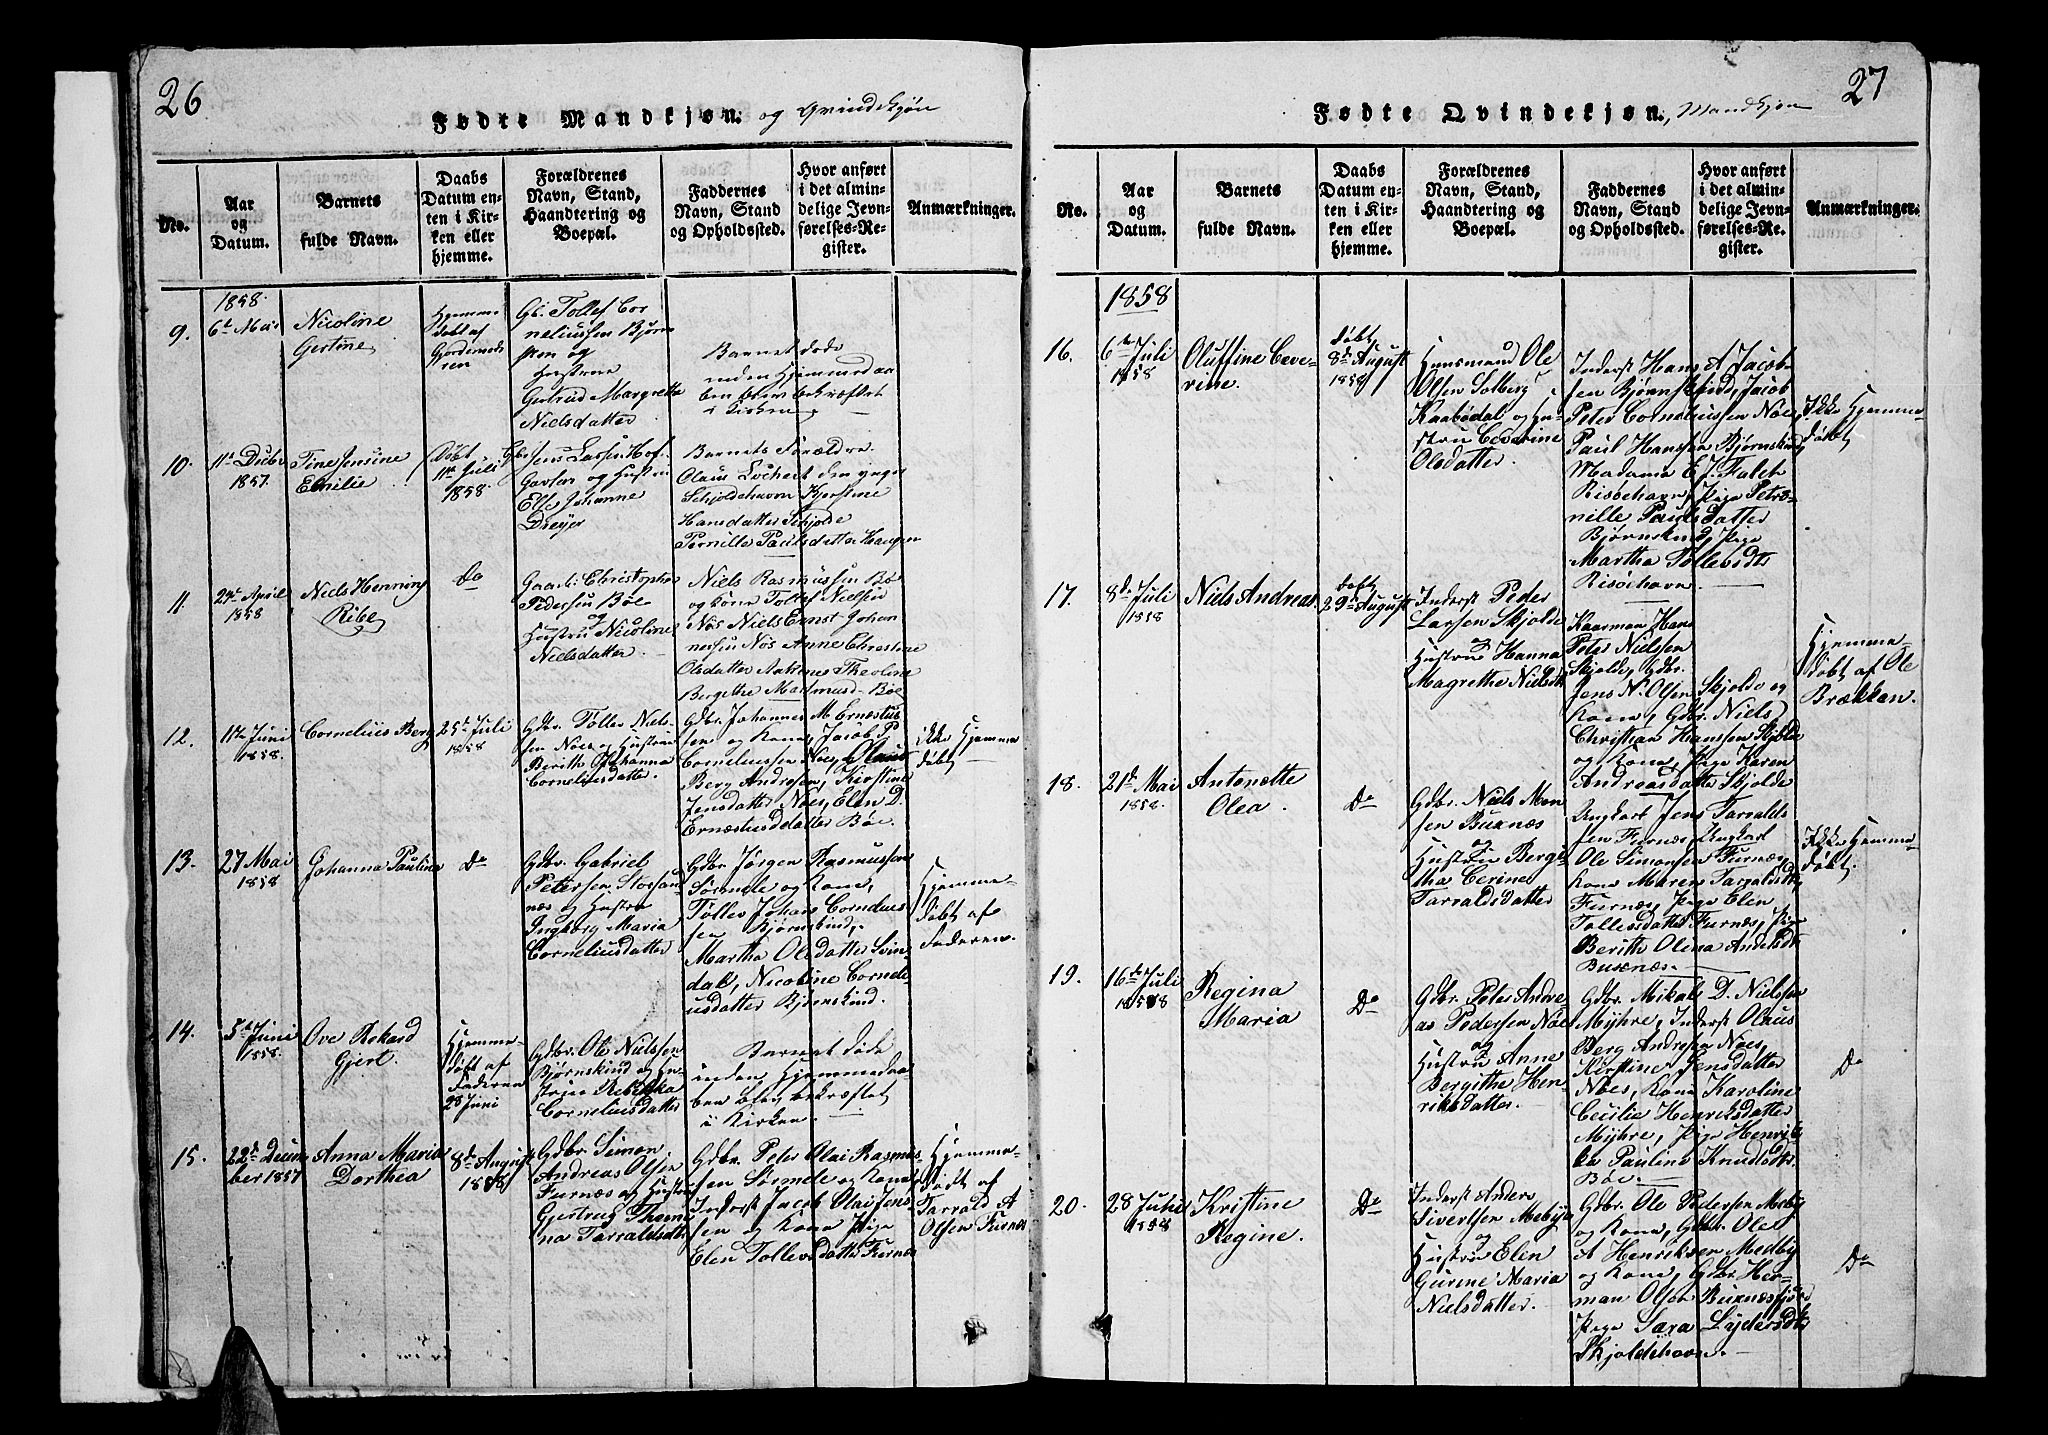 26
Fødte Mandkjøn. og Qvindekjøn
No.
Aar
og
Datum.
Barnets
fulde Navn.
Daabs
Datum en-
ten i Kir-
ken eller
hjemme.
Forældrenes
Navn, Stand,
Haandtering og
Boepæl.
Faddernes
Navn, Stand
og Opholdssted.
Hvor anført
i det almin-
delige Jevn-
førelses-Re-
gister.
Anmærkninger.
9.
1858.
6te Mai
Nicoline
Gertine
Hjemme
døbt af
Gjordemode
ren
Gb. Tollef Cor
neliussen Bjørn
skin og
Hustrue
Gertrud Margrethe
Nielsdatter
Barnet døde
inden Hjemmedaa
ben blev bekræftet
i Kirken
10.
11te Decbr
1857.
Tine Jensine
Emilie
Døbt
11te Juli
1858.
Gbr. Jens Lassen Hof.
Gavlen og Hustru
Else Johanne
Dreyer
Barnets Forældre.
Olaus Lockert den yngre
Schjoldehavn Kjerstine
Hansdatter Schjolde
Pernille Paulsdatter Haugen
11.
24de April
1858
Niels Henning
Ribe
Do
Gaardb: Christopher
Pedersen Bøe
og
Hustru Nicoline
Nielsdatter
Niels Rasmussen Bø
og Kone Tollef Nielsen
Nøs Niels Ernst Johan
nessen Nøs Anne Christine
Olsdatter Theoline
Bergithe Bøe
12.
11te Juni
1858.
Cornelius Berg
25de Juli
1858
Gdbr. Tolles Niels-
sen Noes og Hustrue
Berith Johanna
Corneliusdatter.
Gdbr. Johannes M. Ernestus
sen og Kone, Jacob P.
Corneliussen Noes, Olaus
Berg Andresen, Kirstine
Jensdatter Noes, Elen D.
Ernestusddatter Bøe.
Ikke Hjemme
døbt
13.
27 Mai
1858
Johanna Paulina
Do
Gdbr. Gabriel
Petersen Stosau
næs og Hustru
Ingborg Maria
Corneliusdatter
Gdbr. Jørgen Rasmussen
Sørmele og Kone,
Tølles Johan Cornelius
sen Bjørnskind,
Martha Olsdatter Svin
dal, Nicoline Corneli
usdatter Bjørnskind.
Hjemme-
døbt af
Faderen.
14.
5te Juni
1858.
Ove Rekard
Gjert.
Hjemme-
døbt af
Faderen
28 Juni
Gdbr. Ole Nielssen
Bjørnskind og Hu-
strue Rebekka
Corneliusdatter
Barnet døde
inden Hjemmedaa-
ben blev bekræftet
i Kirken.
15.
22de Decem
ber 1857
Anna Maria
Dorthea
8de August
1858
Gdbr. Simon
Andreas Olsen
Furnæs og Hustru
Gjertrud Thomi
na Tarraldsdtr
Gdbr. Peter Olai Rasmus
sen Sørmele og Kone
Inderst Jacob Olai Jens
sen og Kone Pige
Elen Tollevsdatter Furnæs
Hjemme-
døbt af
Tarrald A
Olsen Furnæs
27
Fødte Qvindekjøn., Mandkjøn
No.
Aar
og
Datum.
Barnets
fulde Navn.
Daabs
Datum en-
ten i Kir-
ken eller
hjemme.
Forældrenes
Navn, Stand,
Haandtering og
Boepæl.
Faddernes
Navn, Stand
og Opholdssted.
Hvor anført
i det almin-
delige Jevn-
førelses-Re-
gister.
Anmærkninger.
1858
16.
6te Juli
1858
Oluffine Ceve-
rine.
døbt
8de August
1858
Huusmand Ole
Olsen Solberg
Kaabødal og Hu-
stru Ceverine
Olsdatter.
Inderst Hans A Jacob-
sen Bjørnskind, Jacob
Peter Corneliussen Noes,
Paul Hanssen Bjørnskind
Madame E. J. Falch
Risøehavn, Pige Petro-
nille Paulsdatter
Bjørnskind, Pige
Martha Tollevsdtr
Risøehavn
Ikke Hjemme-
døbt
17.
8de Juli
1858
Niels Andreas.
døbt
29de August
Inderst Peder
Larsen Skjolde
og
Hustrue Hanna
Magrethe Nielsdtr
Kaarmand Hans
Peter Nielsen
Skjolde, Gdbr.
Jens N. Olsen Skjolde og
Kone, Gdbr. Niels
Christian Hanssen Skjolde
og Kone, Pige Karen
Andreasdatter Skjolde
Hjemme-
døbt af Ole
Brækkan.
18.
21de Mai
1858.
Antonette
Olea.
Do
Gdbr. Niels Mon
sen Buxnæs
og
Hustrue Bergi-
tha Cerine
Tarraldsdatter
Ungkarl Jens Tarralds
sen Furnæs, Ungkarl
Ole Simonsen Furnæs
Kone Maren Tarraldsdtr
Furnæs, Pige Elen
Tollevsdatter Furnæs, Pige
Berith Olena Andersdtr
Buxnæs.
Ikke Hjemme-
døbt.
19.
16de Juli
1858
Regina
Maria
Do
Gdbr. Peter Andre
as Pedersen Noes
og
Hustrue Anne
Bergithe Hen-
riksdatter.
Gdbr. Mikal D. Nielssen
Myhre, Inderst Olaus
Berg Andresen Noes,
Kirstine Jensdatter
Noes, Kone Karoline
Cecilie Henriksdatter
Myhre, Pige Henrik-
ka Pauline Knudsdtr.
Bøe.
Do
20.
28 Juni
1858
Kristine
Regine.
Do
Inderst Anders
Sivertsen Mebye
og
Hustrue Elen
Gurine Maria
Nielsdatter.
Gdbr. Ole Pedersen Mæby
og Kone, Gdbr. Ole
A Henriksen Medby
og Kone, Gdbr. Her-
man Olsen Buxnæsfjord
Pige Sara Lydersdtr
Skjoldehavn.
Do